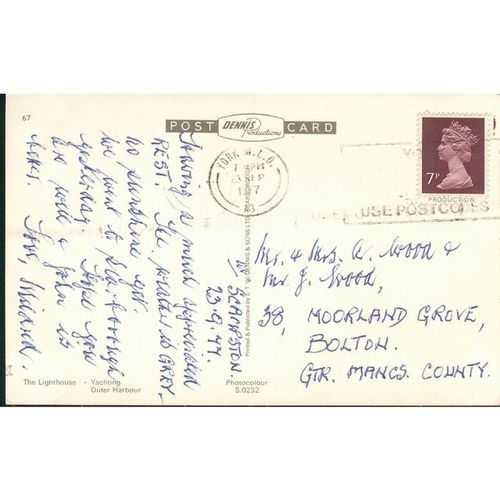 67
POST DENNIS Productions CARD
YORK M.L.O.
PM
7P
PRODUCTION
USE POSTCODES
W. SCAMPSTON.
23.9.77.
Having a much appreciated
REST. The weather is GREY.
no sunshine yet.
We went to Scarborough
yesterday. Hope you
are well & John is
Love,
Mr. & Mrs. W. Wood &
Mr. J. Wood,
38, MOORLAND GROVE,
BOLTON.
GTR. MANCS. COUNTY.
Printed & Published by E. T. W. DENNIS & SONS LTD. SCARBOROUGH
The Lighthouse · Yachting
Outer Harbour
Photocolour
S.0232